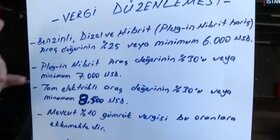 -VERGİ DÜZENLEMESİ-
- Benzinli, Dizel ve Hibrit (Plug-in Hibrit hariç)
Araç değerinin %25 veya minimum 6.000 USD.
- Plug-in Hibrit Araç değerinin %30'u veya
minimum 7.000 USD.
- Tam elektrikli araç değerinin %30'u veya
minimum 8.500 USD.
- Mevcut %10 gümrük vergisi bu oranlara
eklenmektedir.